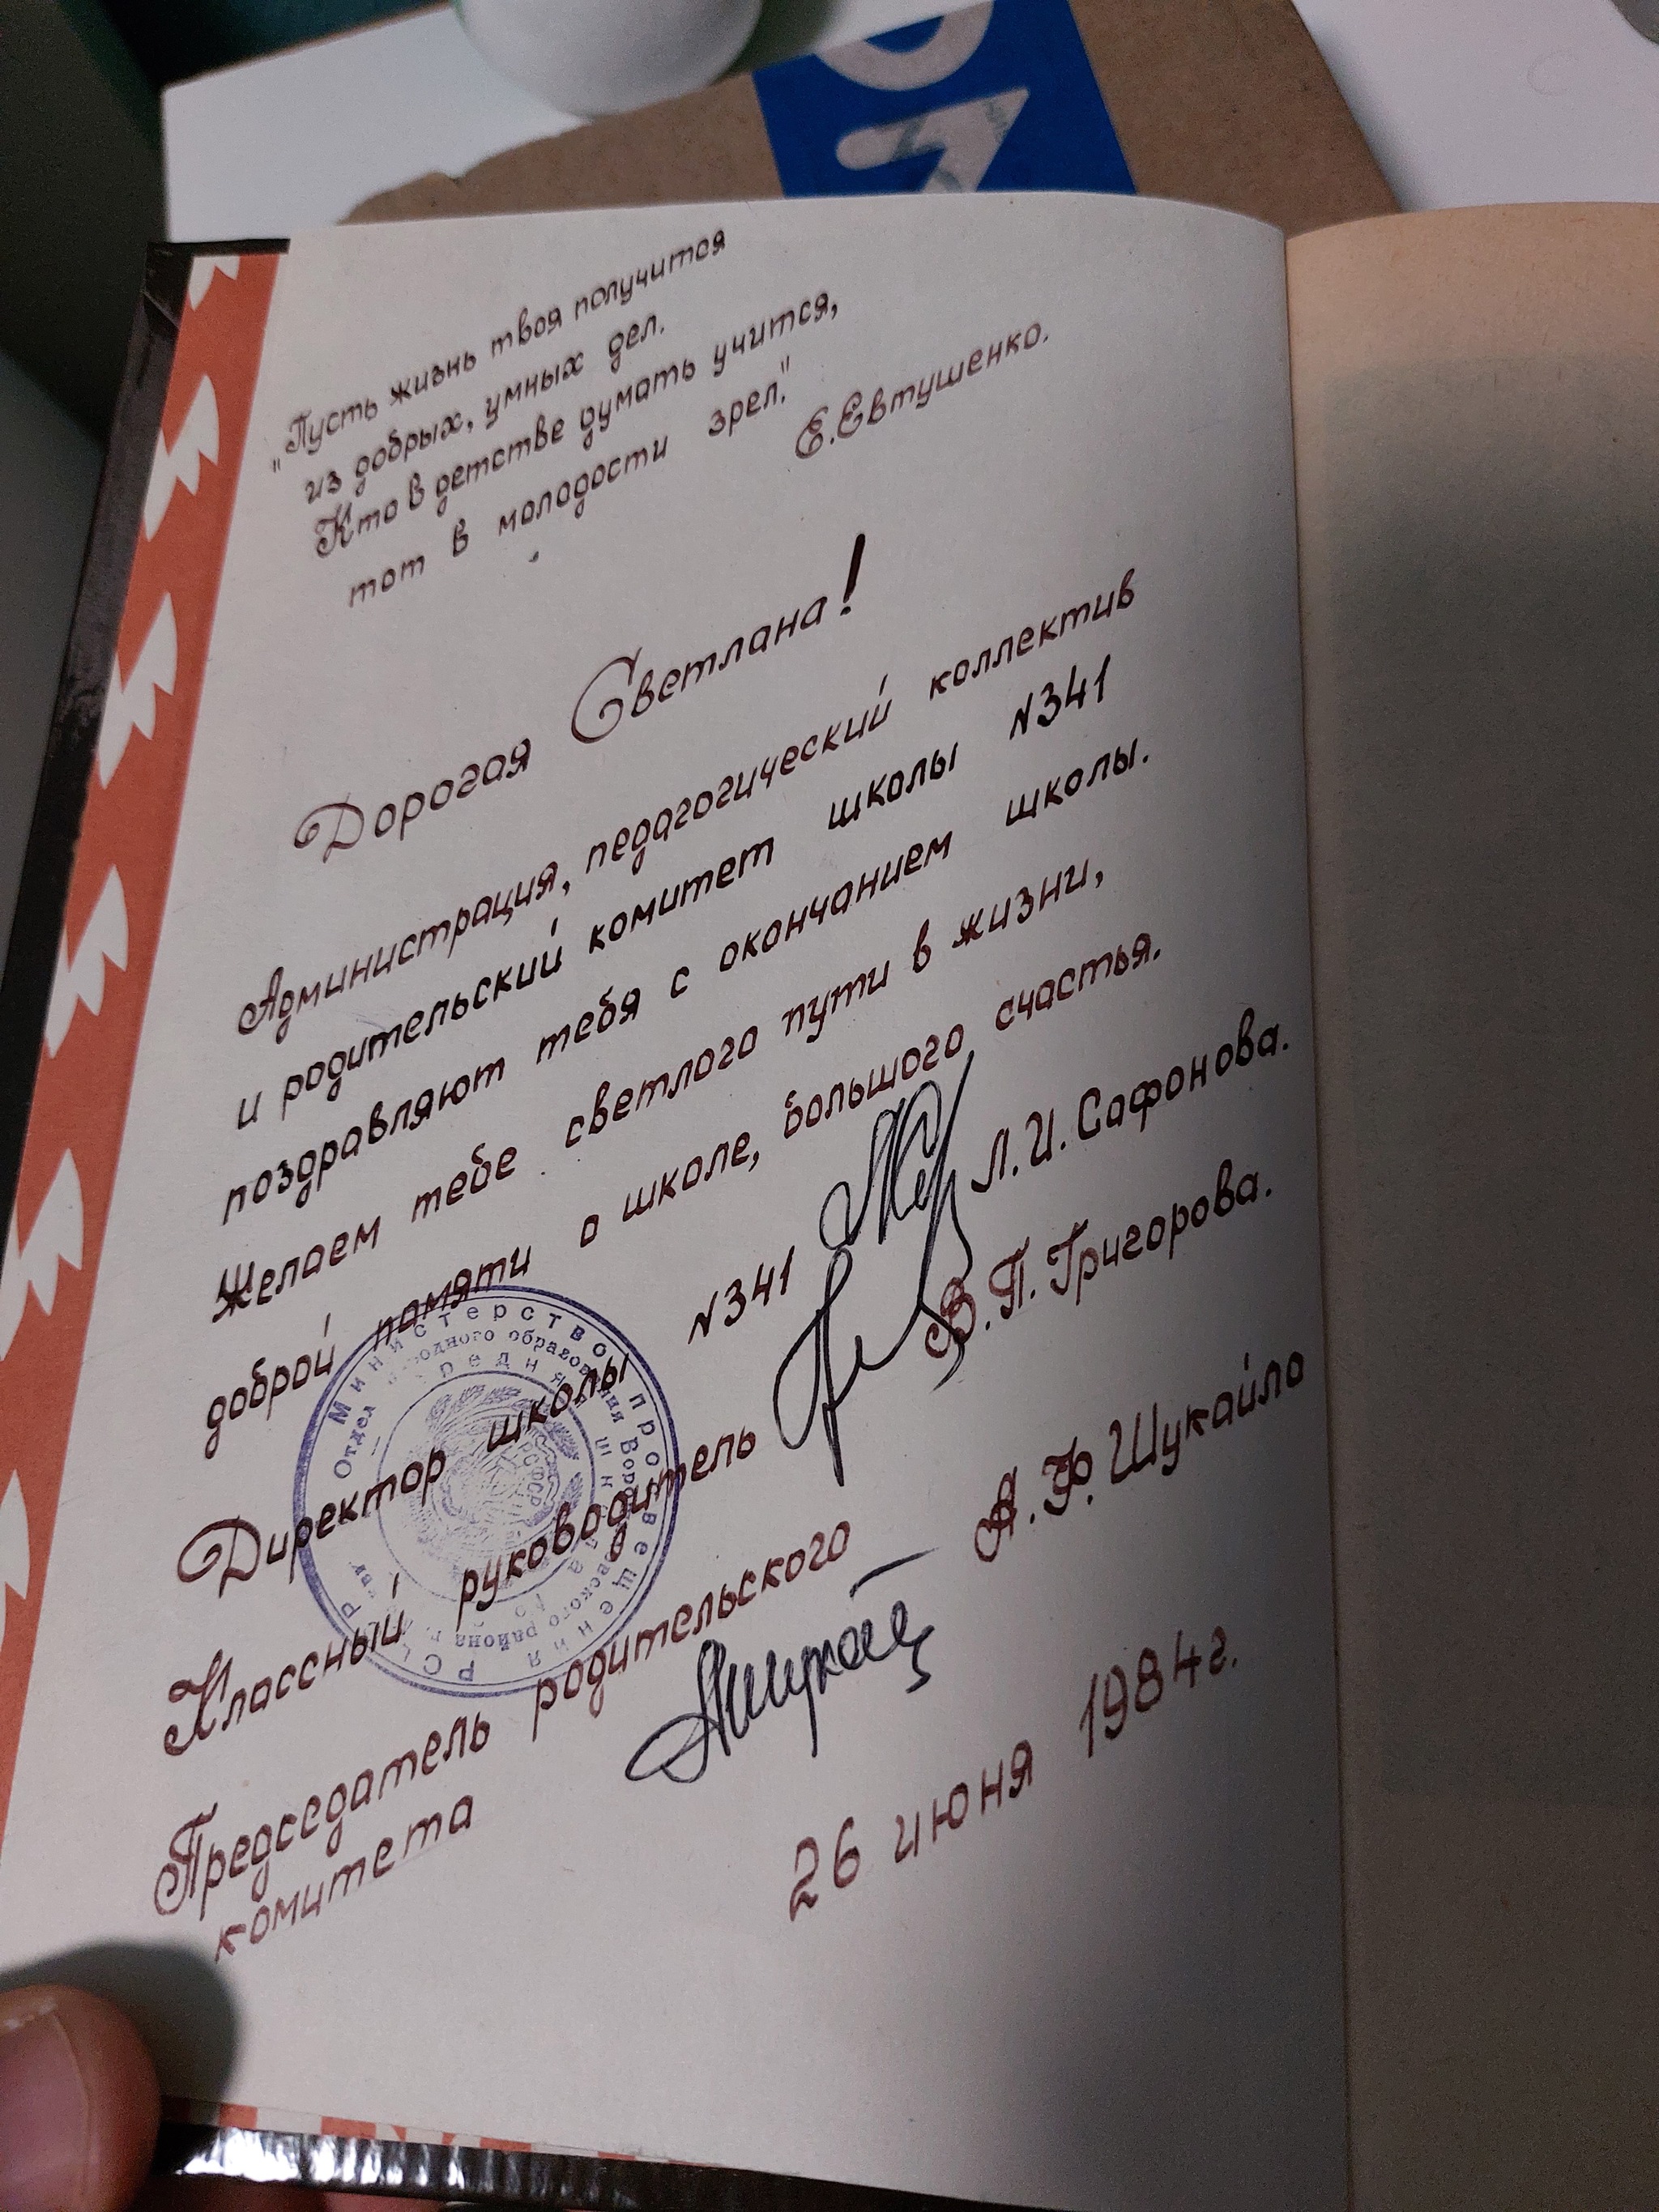 "Пусть жизнь твоя получится
из добрых, умных дел.
Кто в детстве думать учится,
тот в молодости зрел."
Е. Евтушенко.
Дорогая Светлана!
Администрация, педагогический коллектив
и родительский комитет школы N341
поздравляют тебя с окончанием школы.
Желаем тебе светлого пути в жизни,
доброй памяти о школе, большого счастья.
Директор школы N341 Л.И. Сафонова.
Классный руководитель В.П. Григорова.
Председатель родительского А.Ф. Шукайло
комитета
26 июня 1984 г.
Министерство просвещения РСФСР
Отдел народного образования
средняя школа
района
РСФСР